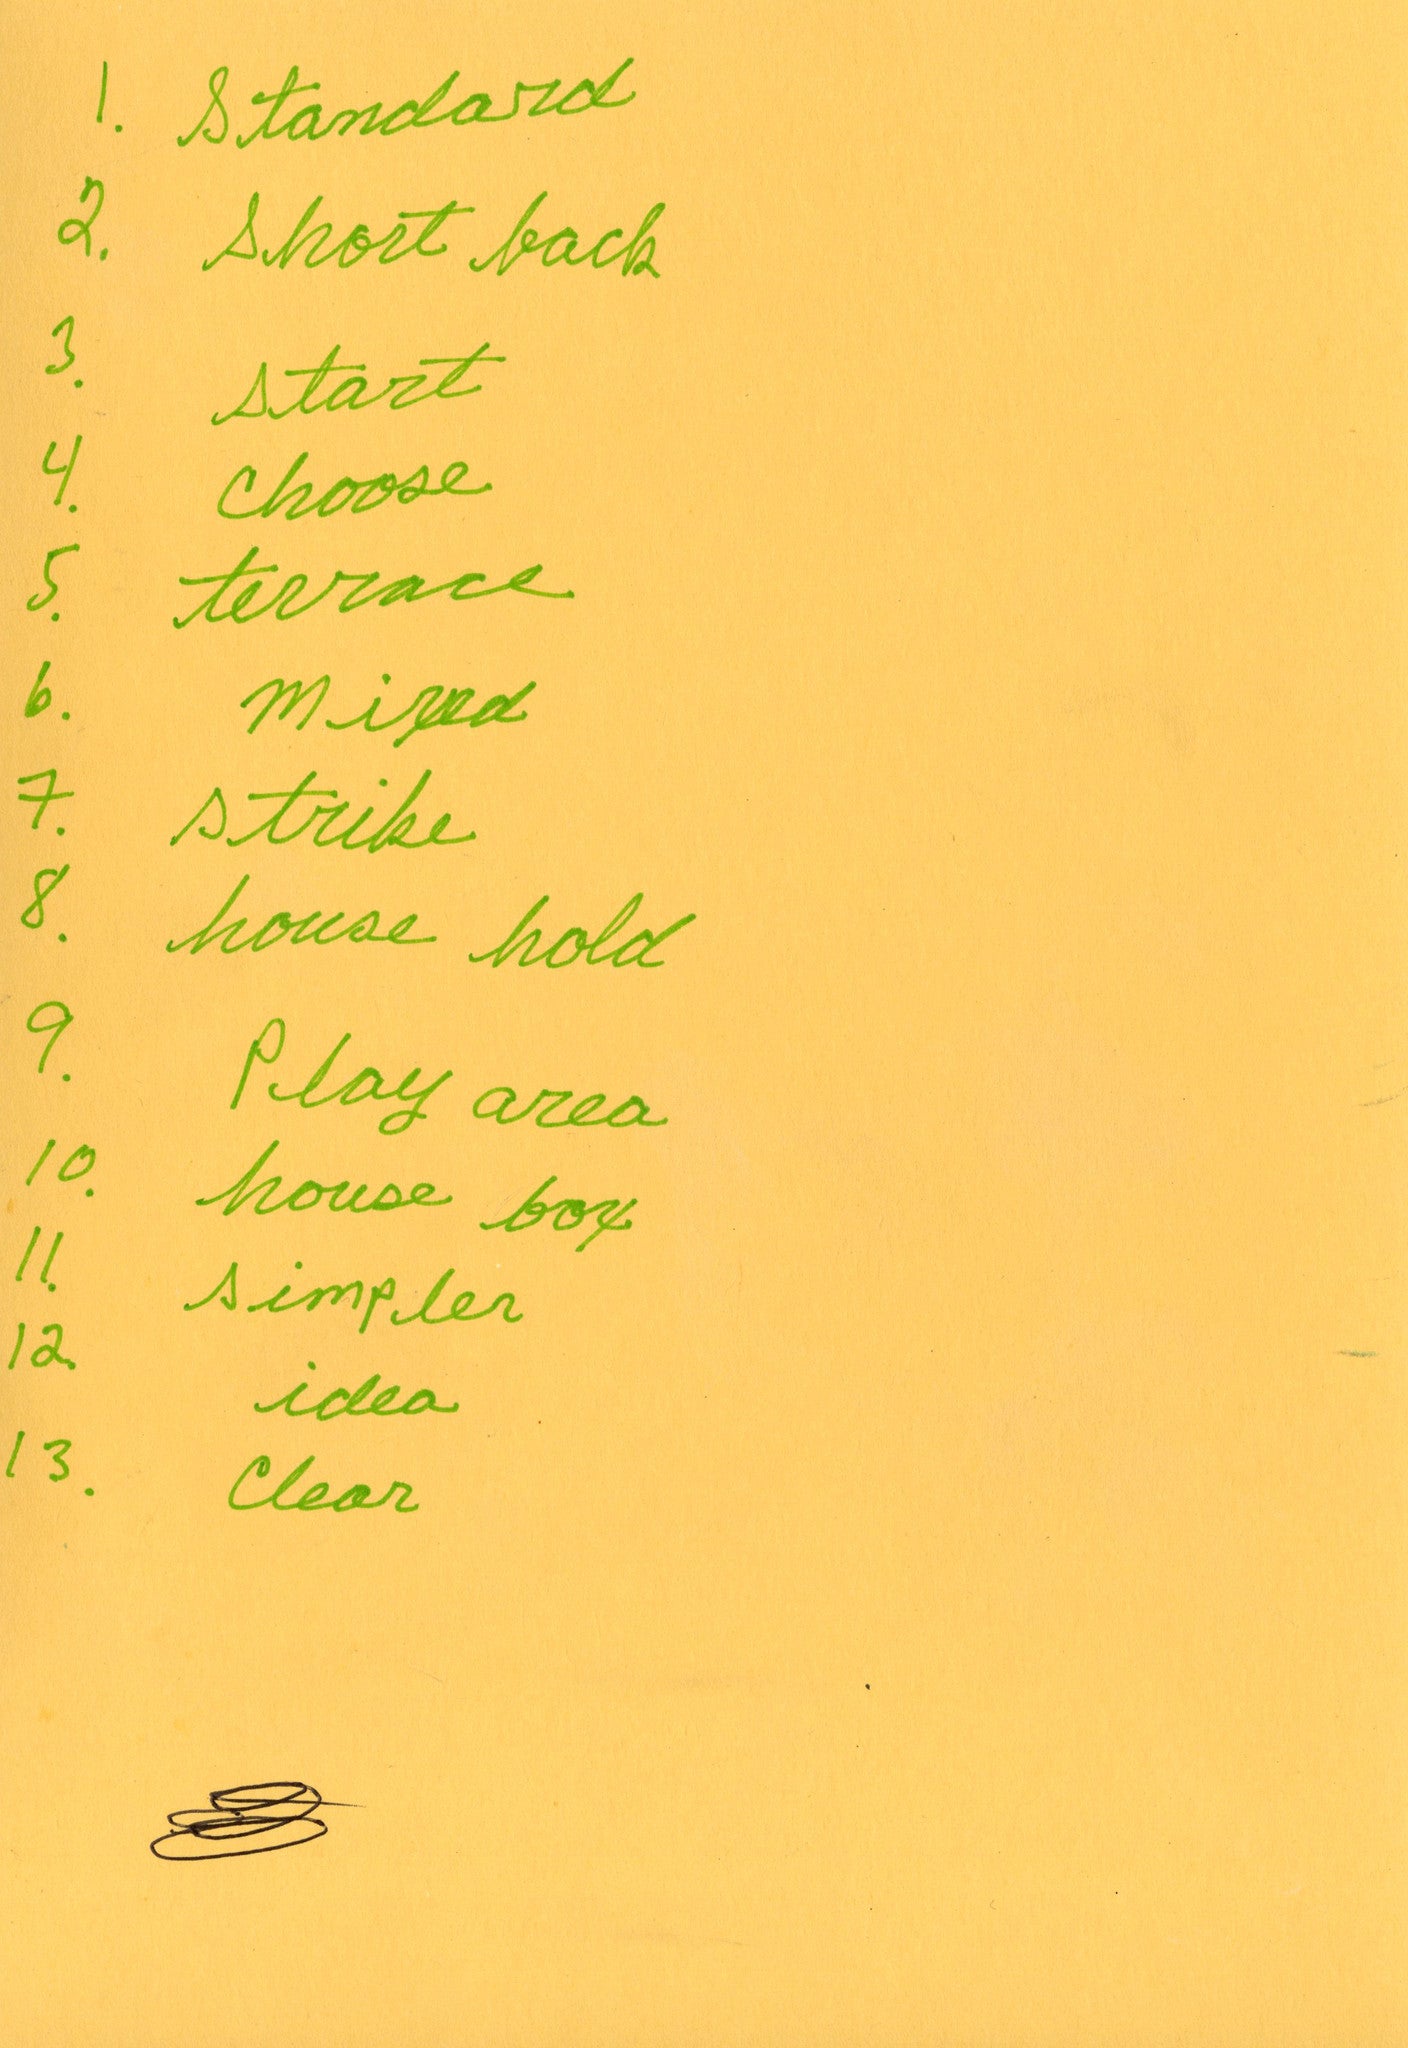 1. Standard
2. Short back
3. start
4. choose
5. terrace
6. Mixed
7. strike
8. house hold
9. Play area
10. house box
11. simpler
12. idea
13. Clear